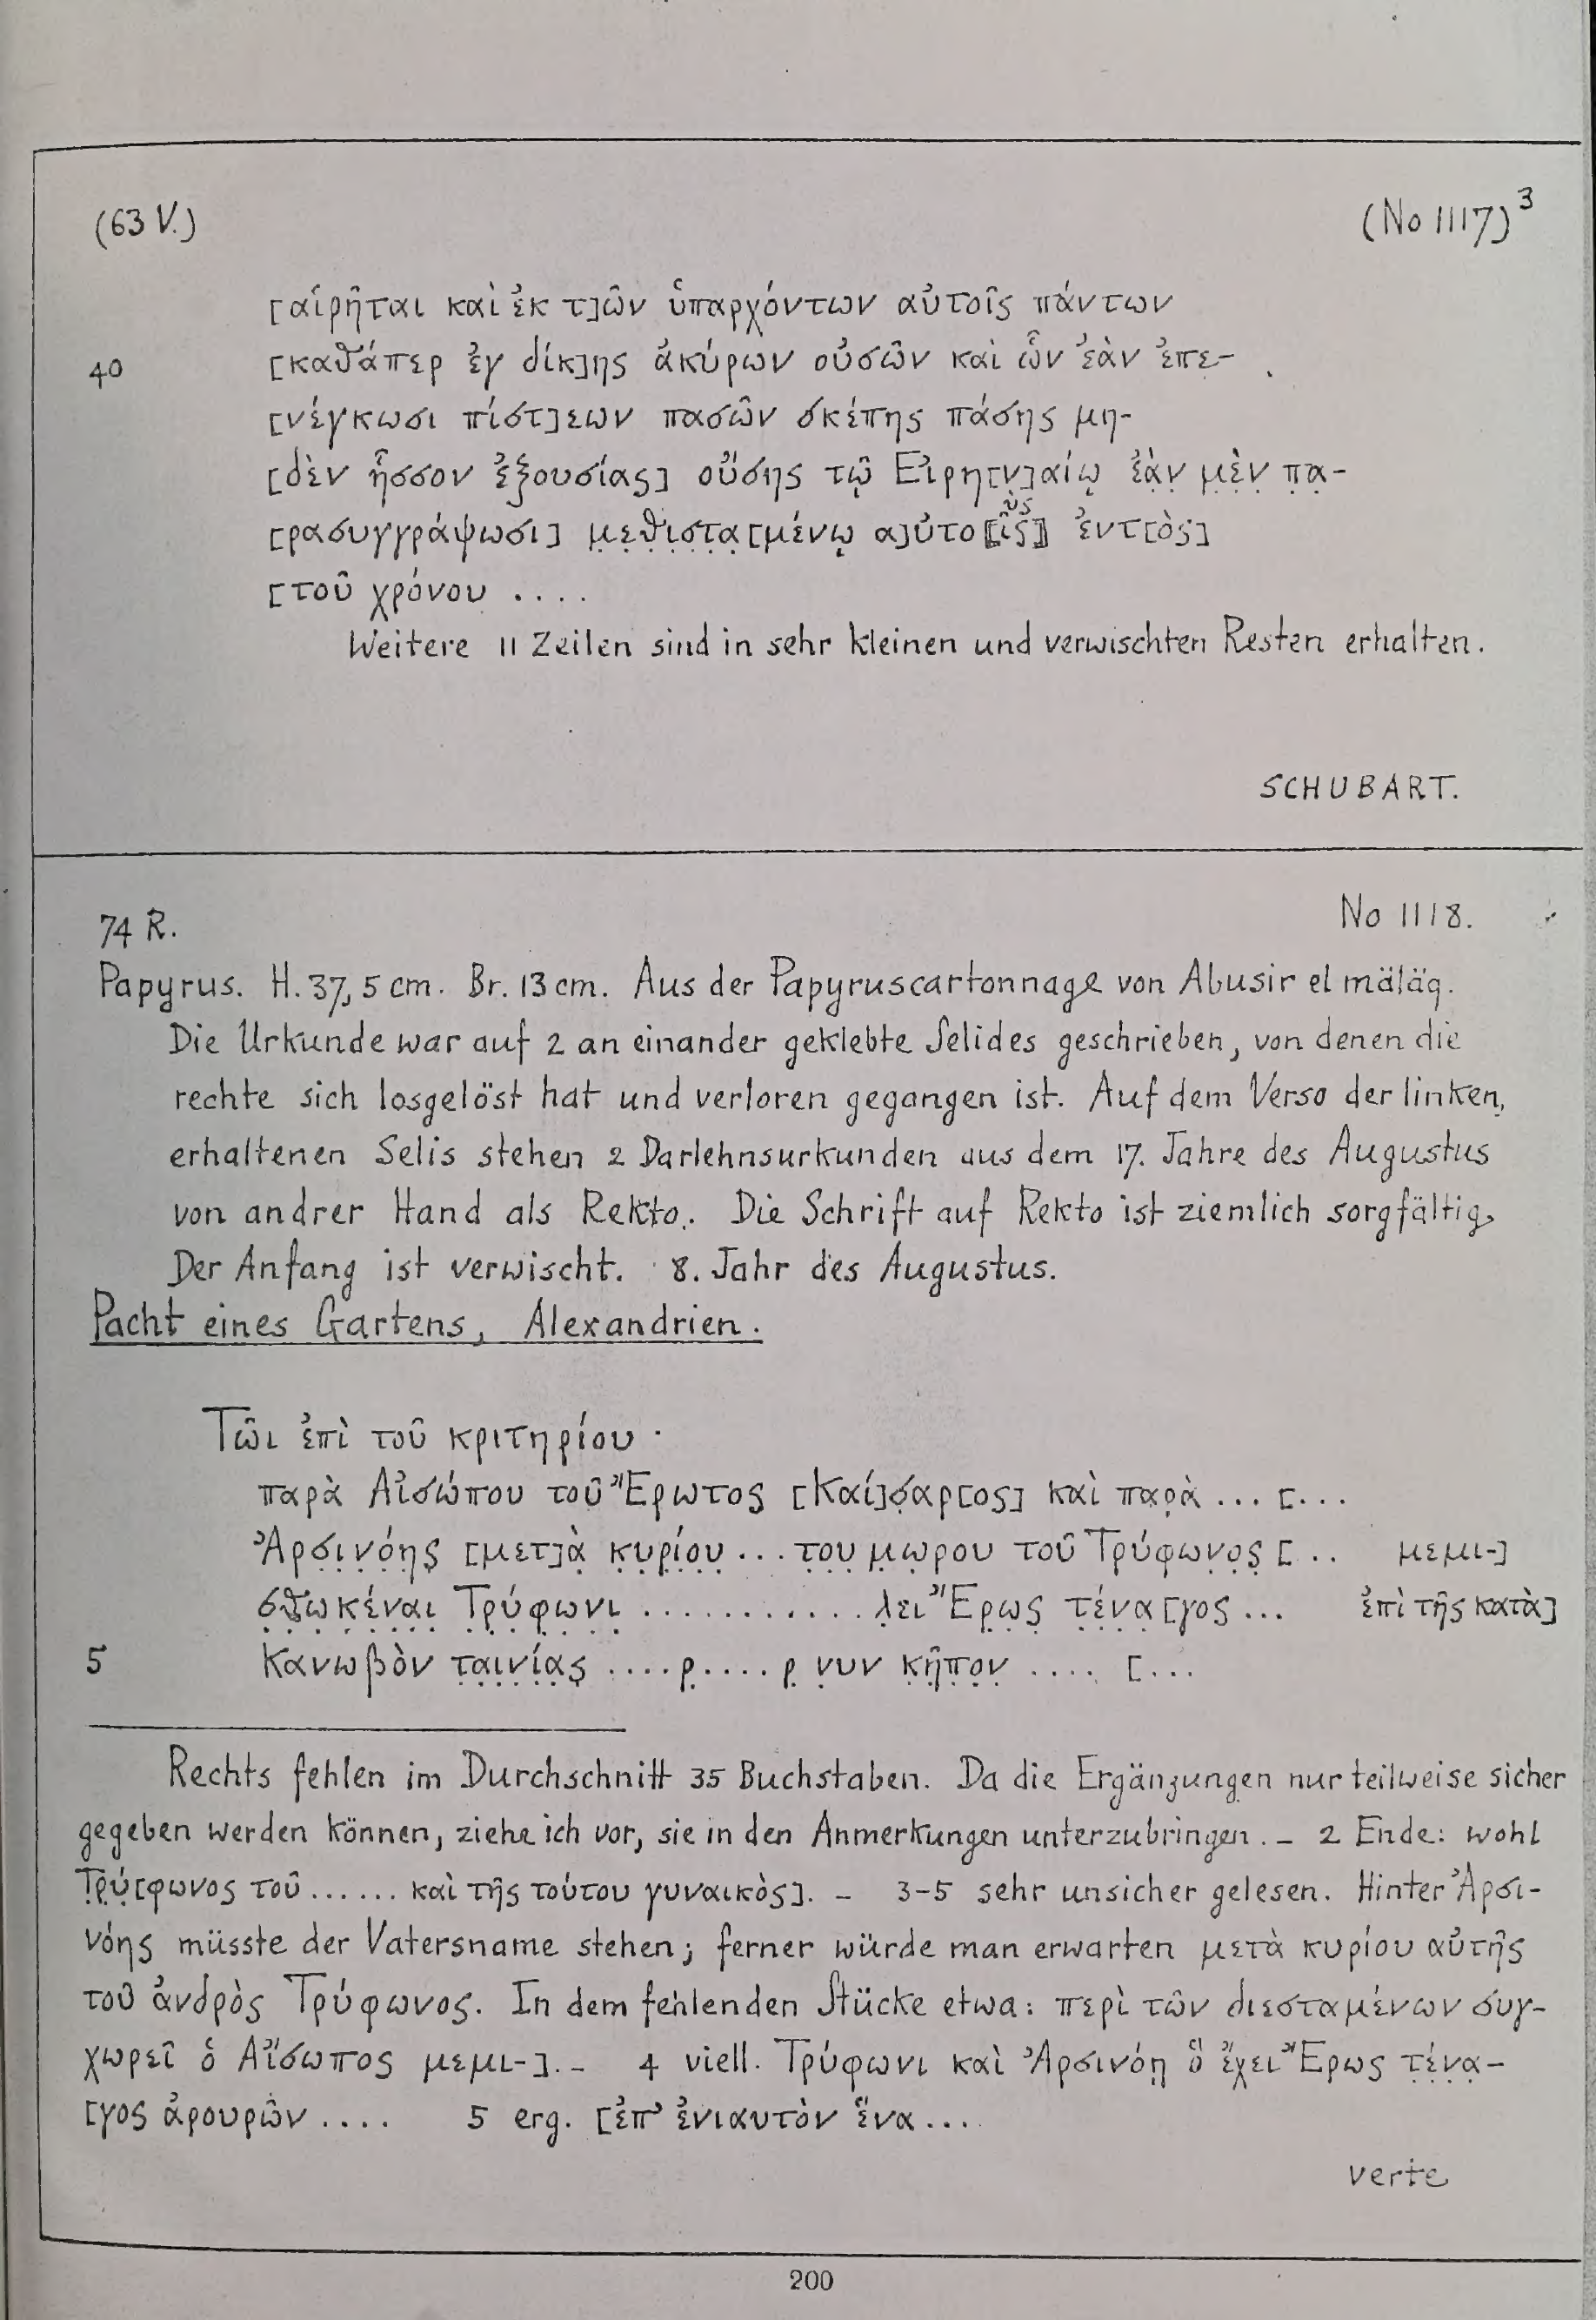 (63 V.)
(No 1117)³
[αἱρῆται καὶ ἐκ τ]ῶν ὑπαρχόντων αὐτοῖς πάντων
40 [καθάπερ ἐγ δίκ]ης ἀκύρων οὐσῶν καὶ ὧν ἐὰν ἐπε-
[νέγκωσι πίστ]εων πασῶν σκέπης πάσης μη-
[δὲν ἧσσον ἐξουσίας] οὔσης τῷ Εἰρη[ν]αίῳ ἐὰ̣ν̣ μ̣ὲ̣ν̣ π̣α̣-
[ρασυγγράψωσι] μ̣ε̣θ̣ι̣σ̣τ̣α̣[μένῳ α]ὐτο⟦ῖς⟧ ὺς ἐντ[ὸς]
[τοῦ χρόνου ....
Weitere 11 Zeilen sind in sehr kleinen und verwischten Resten erhalten.
SCHUBART.
74 R.
No 1118.
Papyrus. H. 37,5 cm. Br. 13 cm. Aus der Papyruscartonnage von Abusir el mäläq.
Die Urkunde war auf 2 an einander geklebte Selides geschrieben, von denen die
rechte sich losgelöst hat und verloren gegangen ist. Auf dem Verso der linken,
erhaltenen Selis stehen 2 Darlehnsurkunden aus dem 17. Jahre des Augustus
von andrer Hand als Rekto. Die Schrift auf Rekto ist ziemlich sorgfältig,
Der Anfang ist verwischt. 8. Jahr des Augustus.
Pacht eines Gartens, Alexandrien.
Τῶι ἐπὶ τοῦ κριτηρίου ·
παρὰ Αἰσώπου τοῦ Ἔρωτος [Καί]σ̣αρ[ος] καὶ παρ̣ὰ ... [...
Ἀρ̣σ̣ι̣ν̣ό̣η̣ς̣ [μετ]ὰ̣ κ̣υ̣ρ̣ί̣ο̣υ̣ ... τ̣ο̣υ̣ μ̣ω̣ρου τοῦ Τρύφων̣ο̣ς̣ [.. μεμι-]
σ̣θ̣ω̣κ̣έ̣ν̣α̣ι̣ Τ̣ρ̣ύ̣φ̣ω̣ν̣ι̣ ............ λ̣ει Ἔρ̣ω̣ς̣ τ̣έ̣ν̣α̣[γος ... ἐπὶ τῆς κατὰ]
5 Κανωβὸν τ̣α̣ι̣ν̣ί̣α̣ς̣ ....ρ̣....ρ̣ ν̣υν κ̣ῆ̣π̣ο̣ν̣ .... [...
Rechts fehlen im Durchschnitt 35 Buchstaben. Da die Ergänzungen nur teilweise sicher
gegeben werden können, ziehe ich vor, sie in den Anmerkungen unterzubringen. – 2 Ende: wohl
Τ̣ρ̣ύ̣[φωνος τοῦ ...... καὶ τῆς τούτου γυναικὸς]. – 3-5 sehr unsicher gelesen. Hinter Ἀρσι-
νόης müsste der Vatersname stehen; ferner würde man erwarten μετὰ κυρίου αὐτῆς
τοῦ ἀνδρὸς Τρύφωνος. In dem fehlenden Stücke etwa: περὶ τῶν διεσταμένων συγ-
χωρεῖ ὁ Αἴσωπος μεμι-]. – 4 viell. Τρύφωνι καὶ Ἀρσινόῃ ὃ ἔχει Ἔρως τ̣έ̣ν̣α̣-
[γος ἀρουρῶν .... 5 erg. [ἐπ' ἐνιαυτὸν ἕνα ...
verte
200